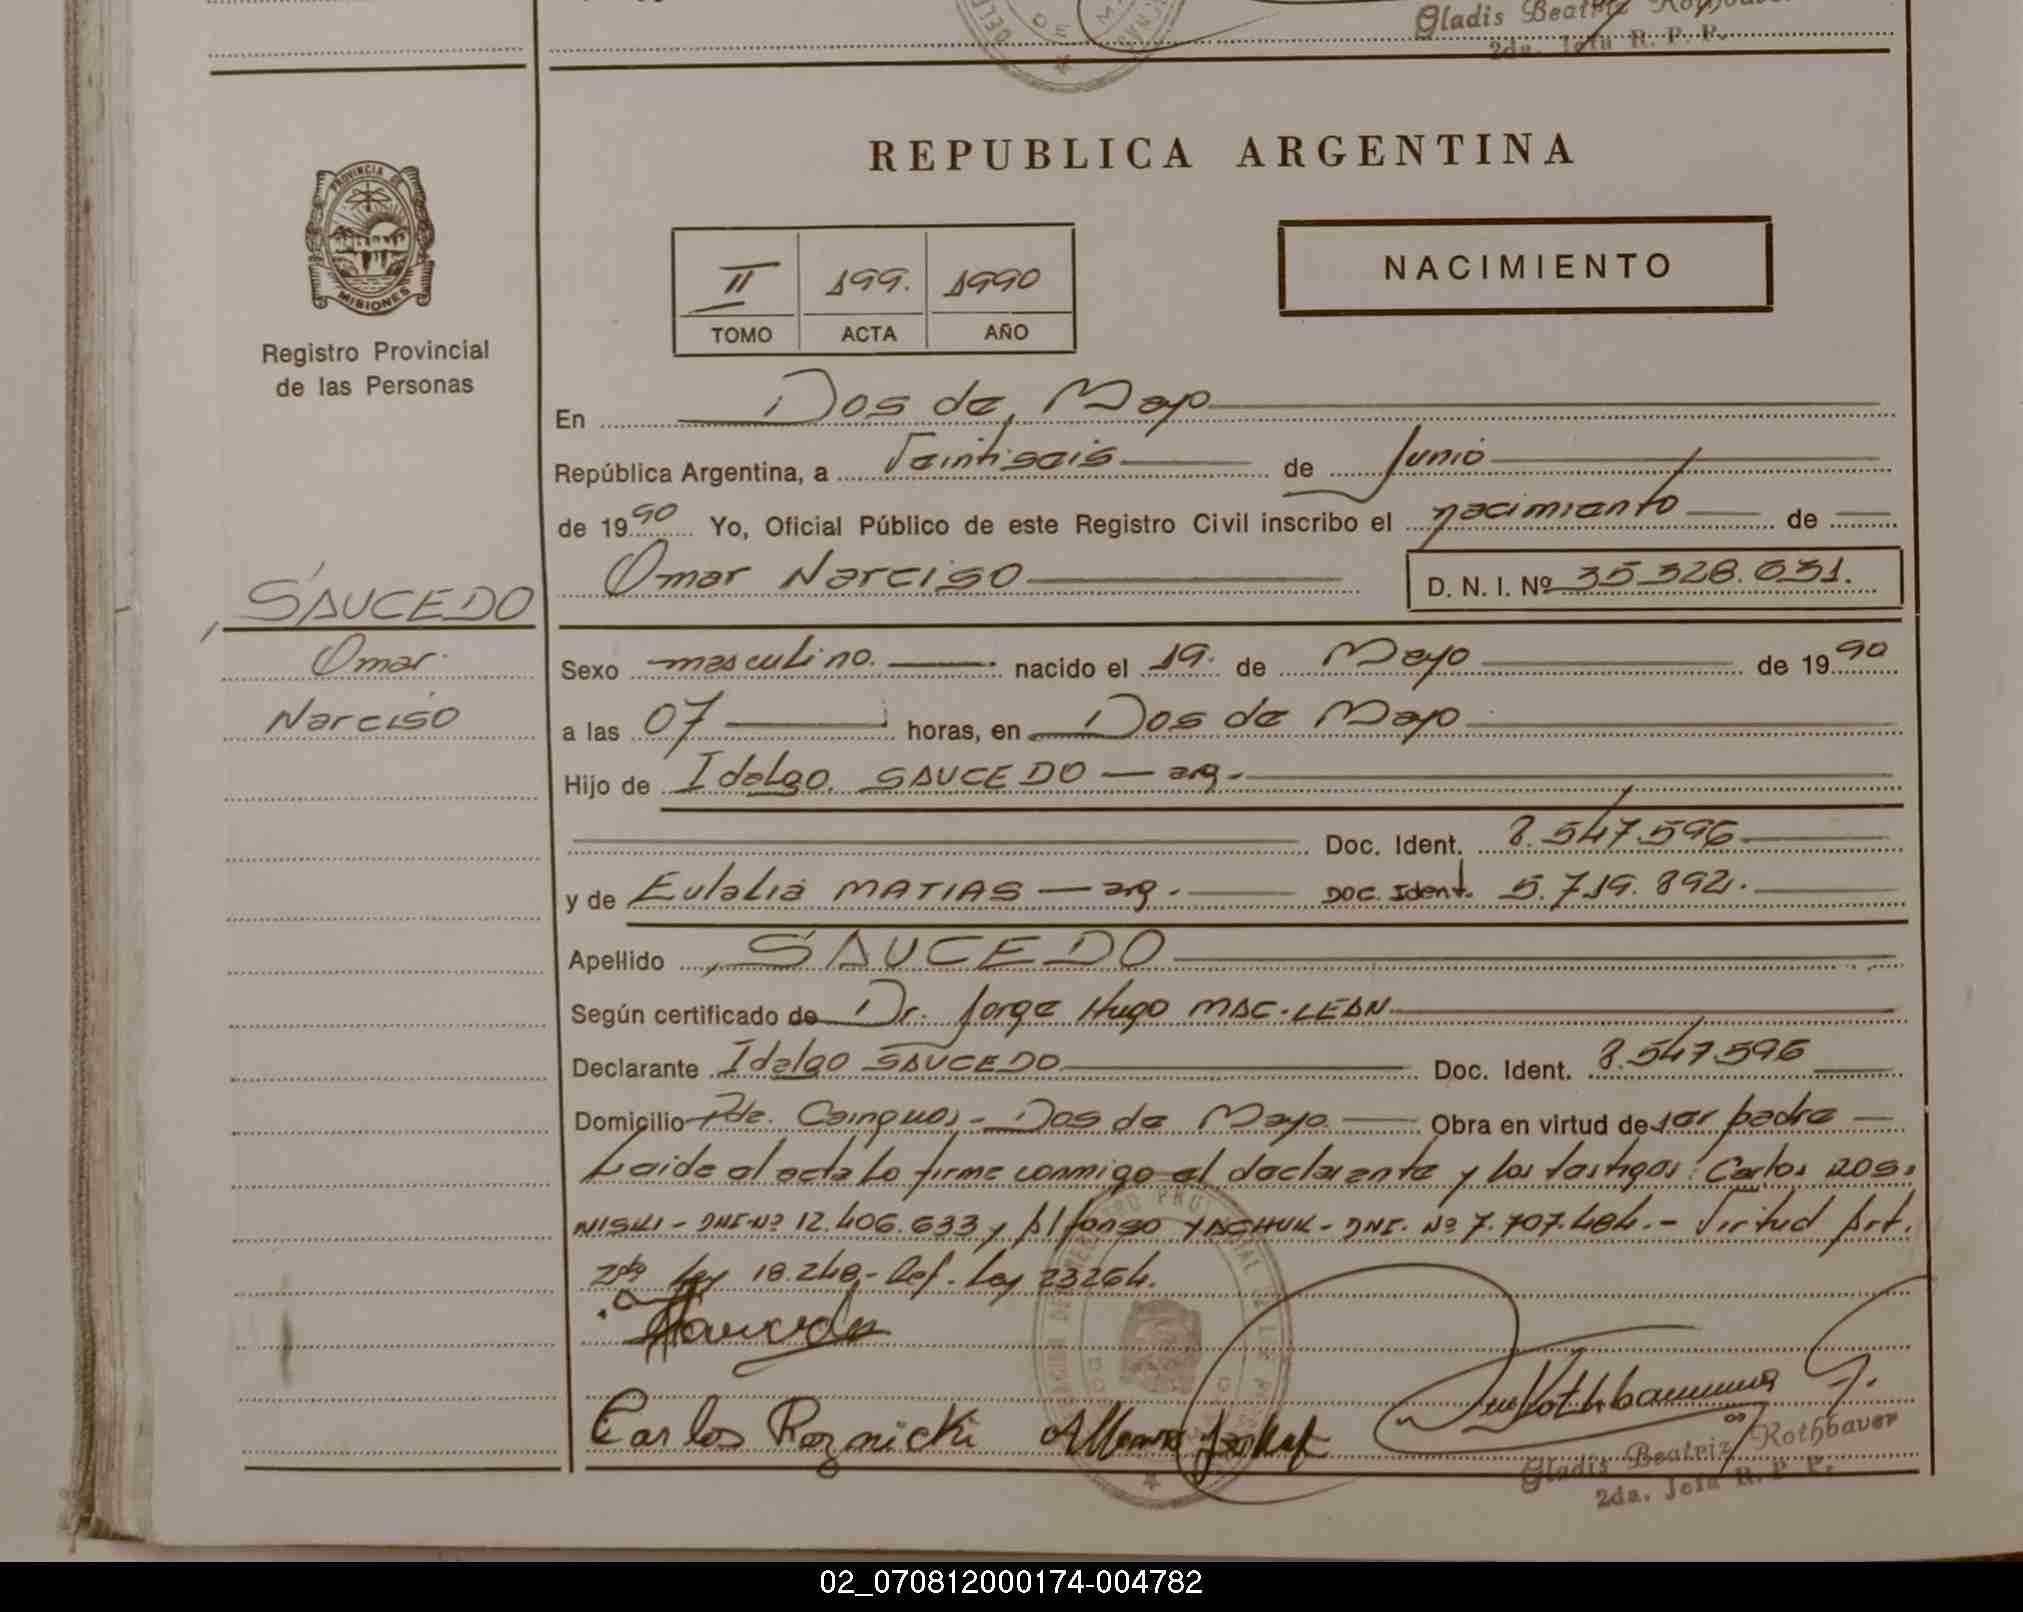 Gladis Beatriz Rothbauer
2da. Jefa R. P. P.
REPUBLICA ARGENTINA
PROVINCIA DE
MISIONES
Registro Provincial
de las Personas
II 199. 1990
TOMO ACTA AÑO
NACIMIENTO
En Dos de Mayo
República Argentina, a Veintiseis de Junio
de 1990 Yo, Oficial Público de este Registro Civil inscribo el nacimiento de
Omar Narciso D. N. I. Nº 35.328.631.
SAUCEDO
Omar
Narciso
Sexo masculino. nacido el 19. de Mayo de 1990
a las 07 horas, en Dos de Mayo
Hijo de Idalgo SAUCEDO — arg.
Doc. Ident. 8.547.596
y de Eulalia MATIAS — arg. Doc. Ident. 5.719.892.
Apellido SAUCEDO
Según certificado de Dr. Jorge Hugo MAC-LEAN
Declarante Idalgo SAUCEDO Doc. Ident. 8.547.596
Domicilio Pde. Cainguas - Dos de Mayo Obra en virtud de ser padre
Leida el acta la firma conmigo el declarante y los testigos: Carlos ROS-
NISKI - DNI-Nº 12.406.633 y Alfonso YASCHUK - DNI. Nº 7.707.484. - Virtud Art.
2do Ley 18.248, - Ref. Ley 23264.
Saucedo
Carlos Roznicki
Gladis Beatriz Rothbauer
2da. Jefa R. P. P.
02_070812000174-004782